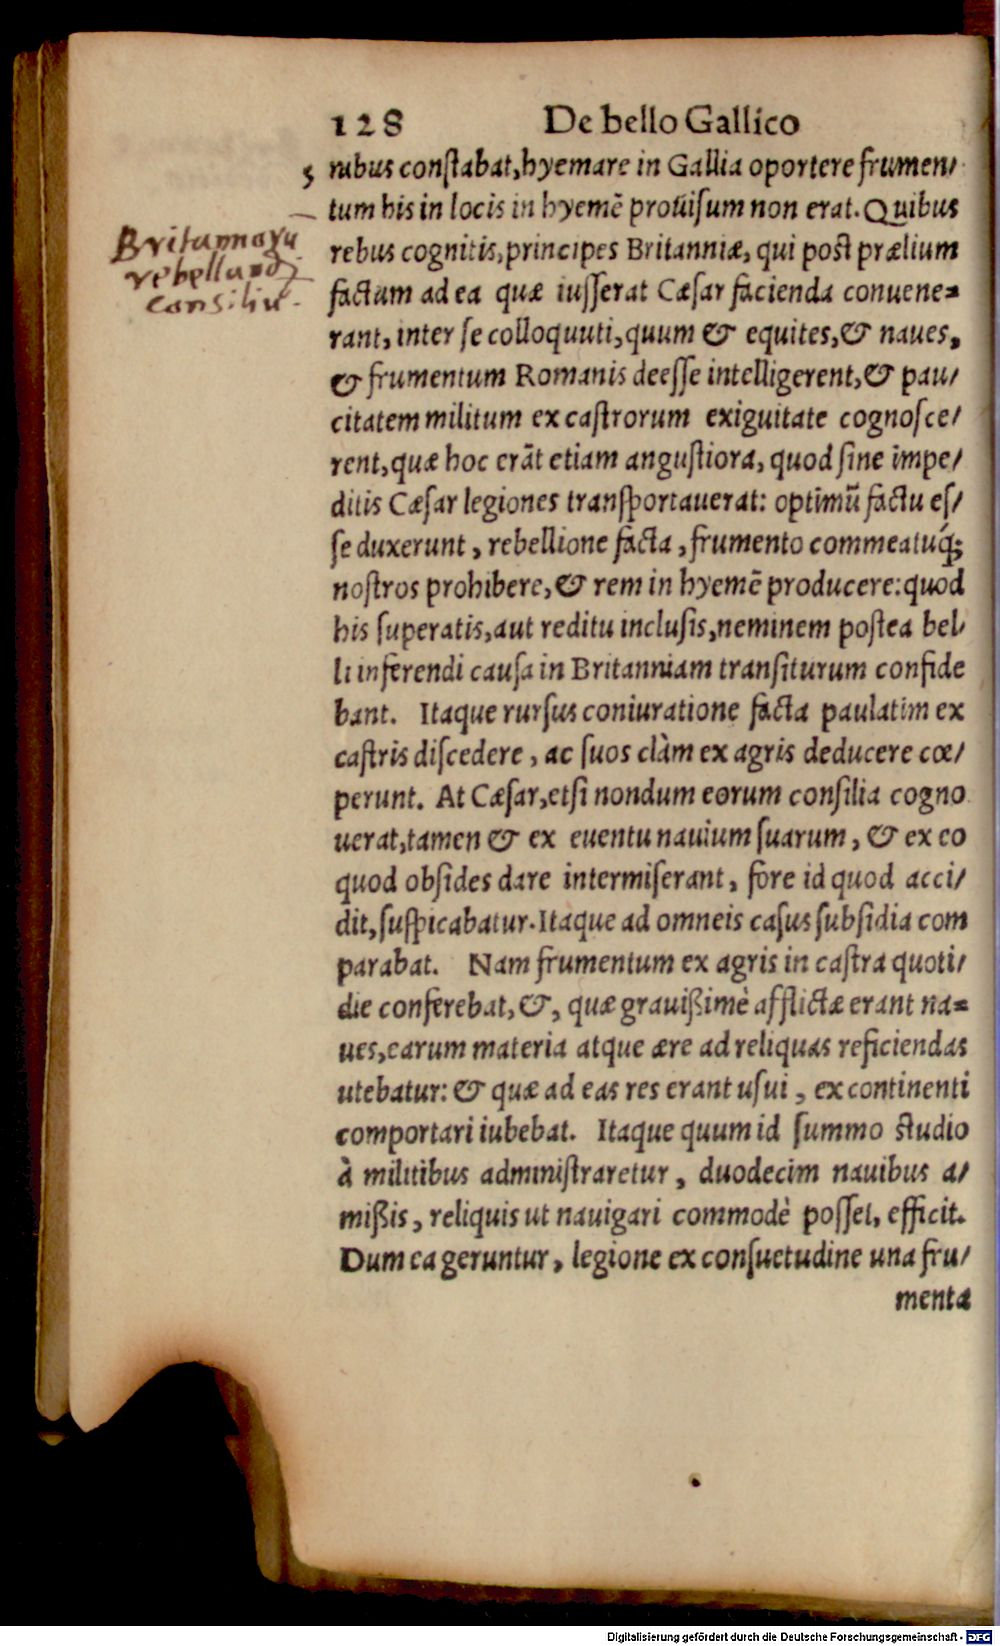 128 De bello Gallico
nibus constabat, hyemare in Gallia oportere frumen/
tum his in locis in hyemẽ prouisum non erat. Quibus
rebus cognitis, principes Britanniæ, qui post prælium
factum ad ea quæ iusserat Cæsar facienda conuene=
rant, inter se colloquuti, quum & equites, & naues,
& frumentum Romanis deesse intelligerent, & pau/
citatem militum ex castrorum exiguitate cognosce/
rent, quæ hoc erãt etiam angustiora, quod sine impe/
ditis Cæsar legiones transportauerat: optimũ factu es/
se duxerunt, rebellione facta, frumento commeatuq́;
nostros prohibere, & rem in hyemẽ producere: quod
his superatis, aut reditu inclusis, neminem postea bel/
li inferendi causa in Britanniam transiturum confide
bant. Itaque rursus coniuratione facta paulatim ex
castris discedere, ac suos clàm ex agris deducere cœ/
perunt. At Cæsar, etsi nondum eorum consilia cogno
uerat, tamen & ex euentu nauium suarum, & ex eo
quod obsides dare intermiserant, fore id quod acci/
dit, suspicabatur. Itaque ad omneis casus subsidia com
parabat. Nam frumentum ex agris in castra quoti/
die conferebat, &, quæ grauißimè afflictæ erant na=
ues, earum materia atque ære ad reliquas reficiendas
utebatur: & quæ ad eas res erant usui, ex continenti
comportari iubebat. Itaque quum id summo studio
à militibus administraretur, duodecim nauibus a/
mißis, reliquis ut nauigari commodè posset, efficit.
Dum ea geruntur, legione ex consuetudine una fru/
mentæ
Britannorũ
rebellandj
consiliũ.
Digitalisierung gefördert durch die Deutsche Forschungsgemeinschaft - DFG